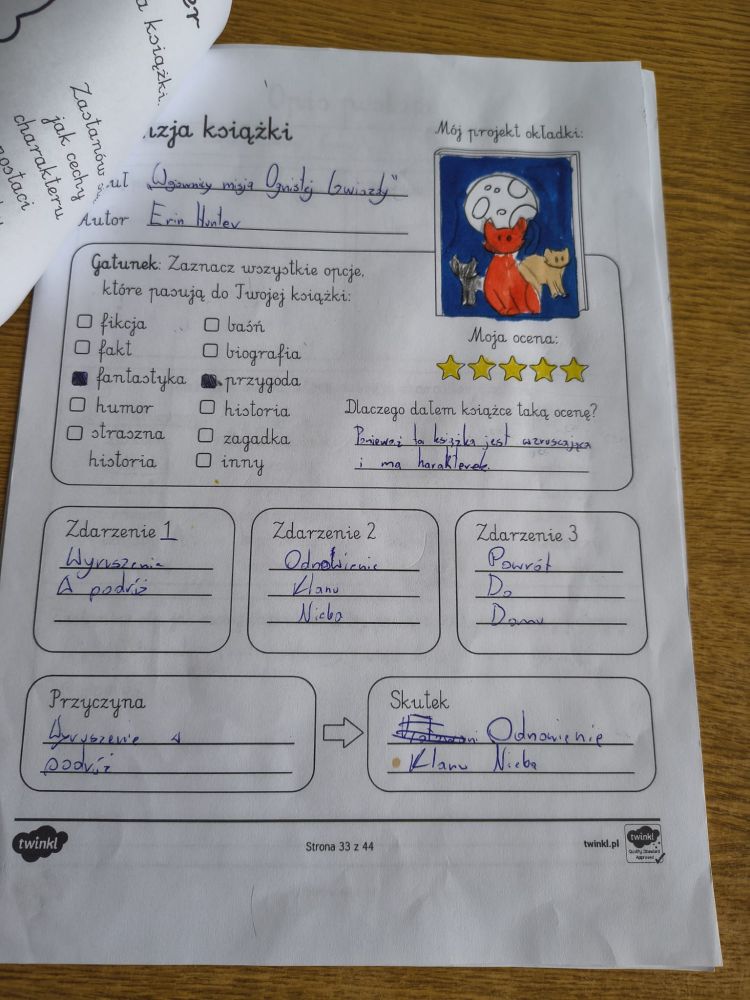 er
a książki.
Zastanów
jak cechy
charakteru
postaci
zja książki
Mój projekt okładki:
uł „Wyjawniy misja Ognistej Gwiazdy"
Autor Erin Hunter
Gatunek: Zaznacz wszystkie opcje,
które pasują do Twojej książki:
fikcja
baśń
fakt
biografia
fantastyka
przygoda
humor
historia
straszna
historia
zagadka
inny
Moja ocena:
Dlaczego dałem książce taką ocenę?
Ponieważ ta książka jest wzruszająca
i ma harakterek.
Zdarzenie 1
Wyruszenie
A podróż
Zdarzenie 2
Odnowienie
Klanu
Nieba
Zdarzenie 3
Powrót
Do
Domu
Przyczyna
Wyruszenie w
podróż
Skutek
Odnowienie
Klanu Nieba
twinkl
Strona 33 z 44
twinkl.pl
twinkl
Quality Standard
Approved